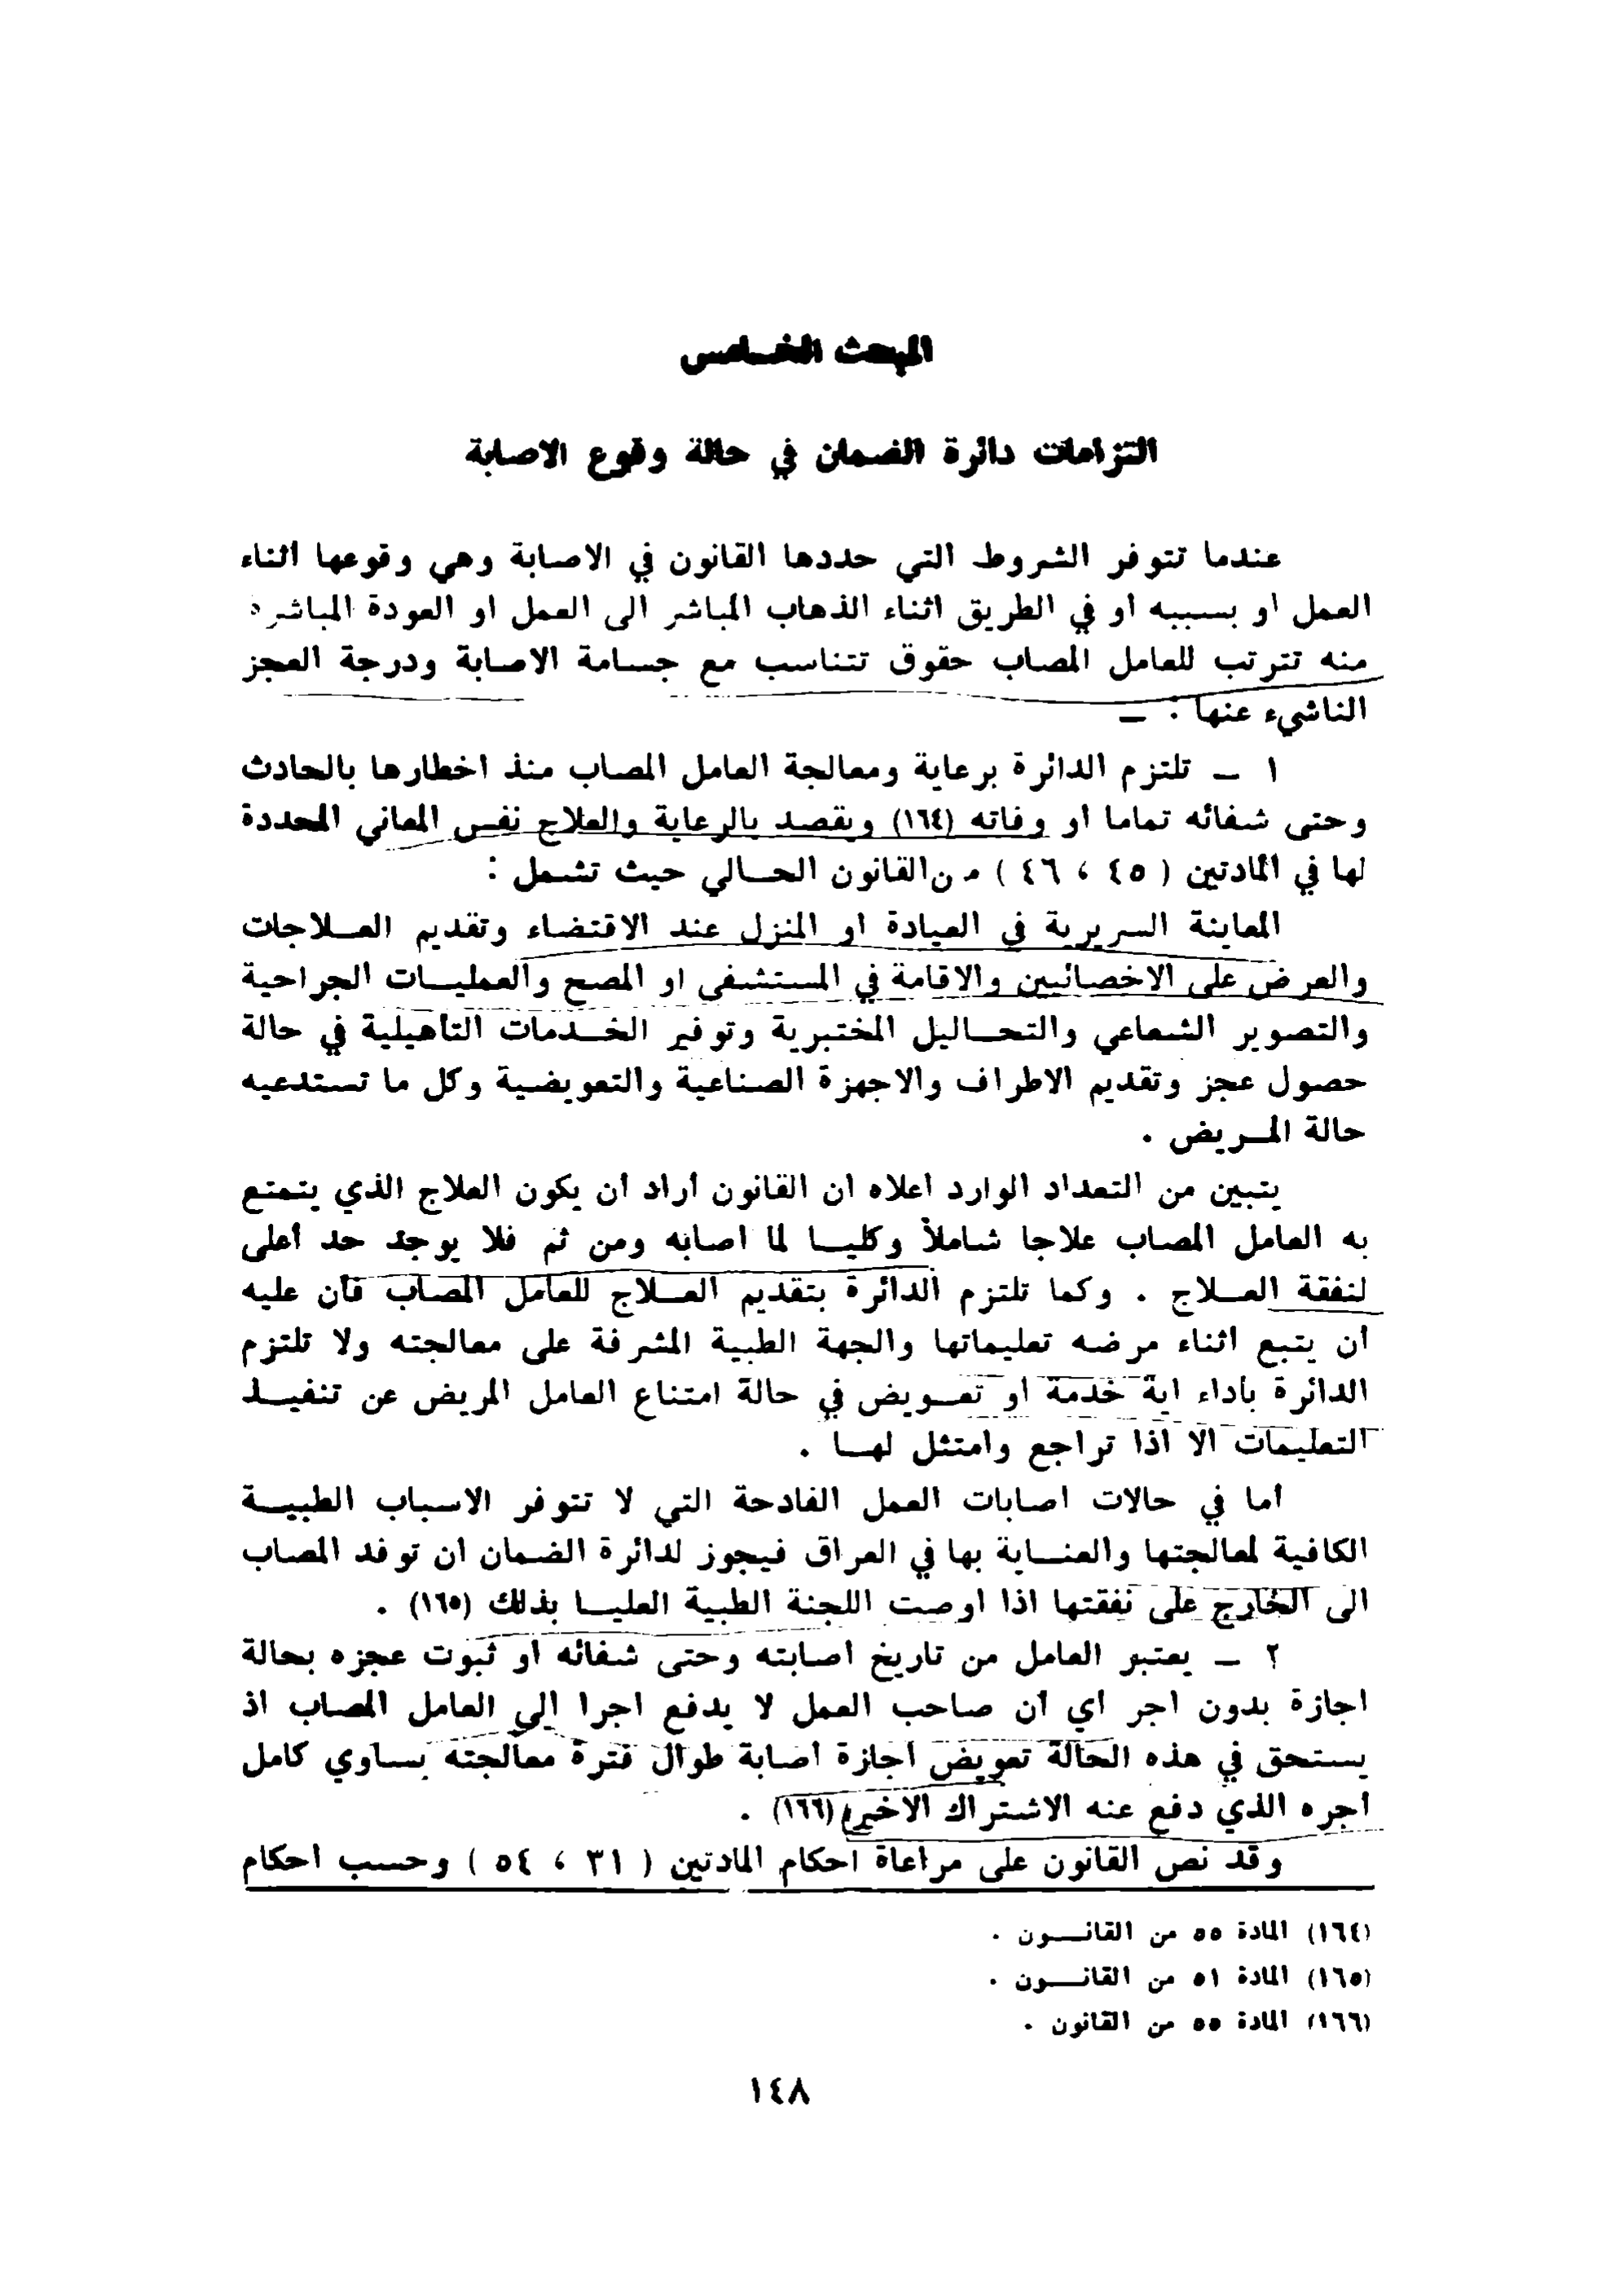 المبحث الخـامس
التزامات دائرة الضمان في حالة وقوع الاصابة
عندما تتوفر الشروط التي حددها القانون في الاصابة وهي وقوعها اثناء
العمل او بسببه او في الطريق اثناء الذهاب المباشر الى العمل او العودة المباشرة
منه تترتب للعامل المصاب حقوق تتناسب مع جسامة الاصابة ودرجة العجز
الناشيء عنها : ـ
١ ـ تلتزم الدائرة برعاية ومعالجة العامل المصاب منذ اخطارها بالحادث
وحتى شفائه تماما او وفاته (١٦٤) ويقصد بالرعاية والعلاج نفس المعاني المحددة
لها في المادتين ( ٤٥ ، ٤٦ ) من القانون الحـالي حيث تشـمل :
المعاينة السريرية في العيادة او المنزل عند الاقتضاء وتقديم العـلاجات
والعرض على الاخصائيين والاقامة في المستشفى او المصح والعمليـات الجراحية
والتصوير الشعاعي والتحـاليل المختبرية وتوفير الخـدمات التأهيلية في حالة
حصول عجز وتقديم الاطراف والاجهزة الصناعية والتعويضية وكل ما تستدعيه
حالة المـريض .
يتبين من التعداد الوارد اعلاه ان القانون أراد ان يكون العلاج الذي يتمتع
به العامل المصاب علاجا شاملاً وكليـا لما اصابه ومن ثم فلا يوجد حد أعلى
لنفقة العـلاج . وكما تلتزم الدائرة بتقديم العـلاج للعامل المصاب فأن عليه
ان يتبع اثناء مرضه تعليماتها والجهة الطبية المشرفة على معالجته ولا تلتزم
الدائرة بأداء اية خدمة او تعـويض في حالة امتناع العامل المريض عن تنفيـذ
التعليمات الا اذا تراجع وامتثل لهـا .
أما في حالات اصابات العمل الفادحة التي لا تتوفر الاسباب الطبيـة
الكافية لمعالجتها والعنـاية بها في العراق فيجوز لدائرة الضمان ان توفد المصاب
الى الخارج على نفقتها اذا اوصت اللجنة الطبية العليـا بذلك (١٦٥) .
٢ ـ يعتبر العامل من تاريخ اصابته وحتى شفائه او ثبوت عجزه بحالة
اجازة بدون اجر اي ان صاحب العمل لا يدفع اجرا الى العامل المصاب اذ
يستحق في هذه الحالة تعويض اجازة اصابة طوال فترة معالجته يسـاوي كامل
أجره الذي دفع عنه الاشتراك الاخير (١٦٦) .
وقد نص القانون على مراعاة احكام المادتين ( ٣١ ، ٥٤ ) وحسب احكام
(١٦٤) المادة ٥٥ من القانـــون .
(١٦٥) المادة ٥١ من القانـــون .
(١٦٦) المادة ٥٥ من القانون .
١٤٨